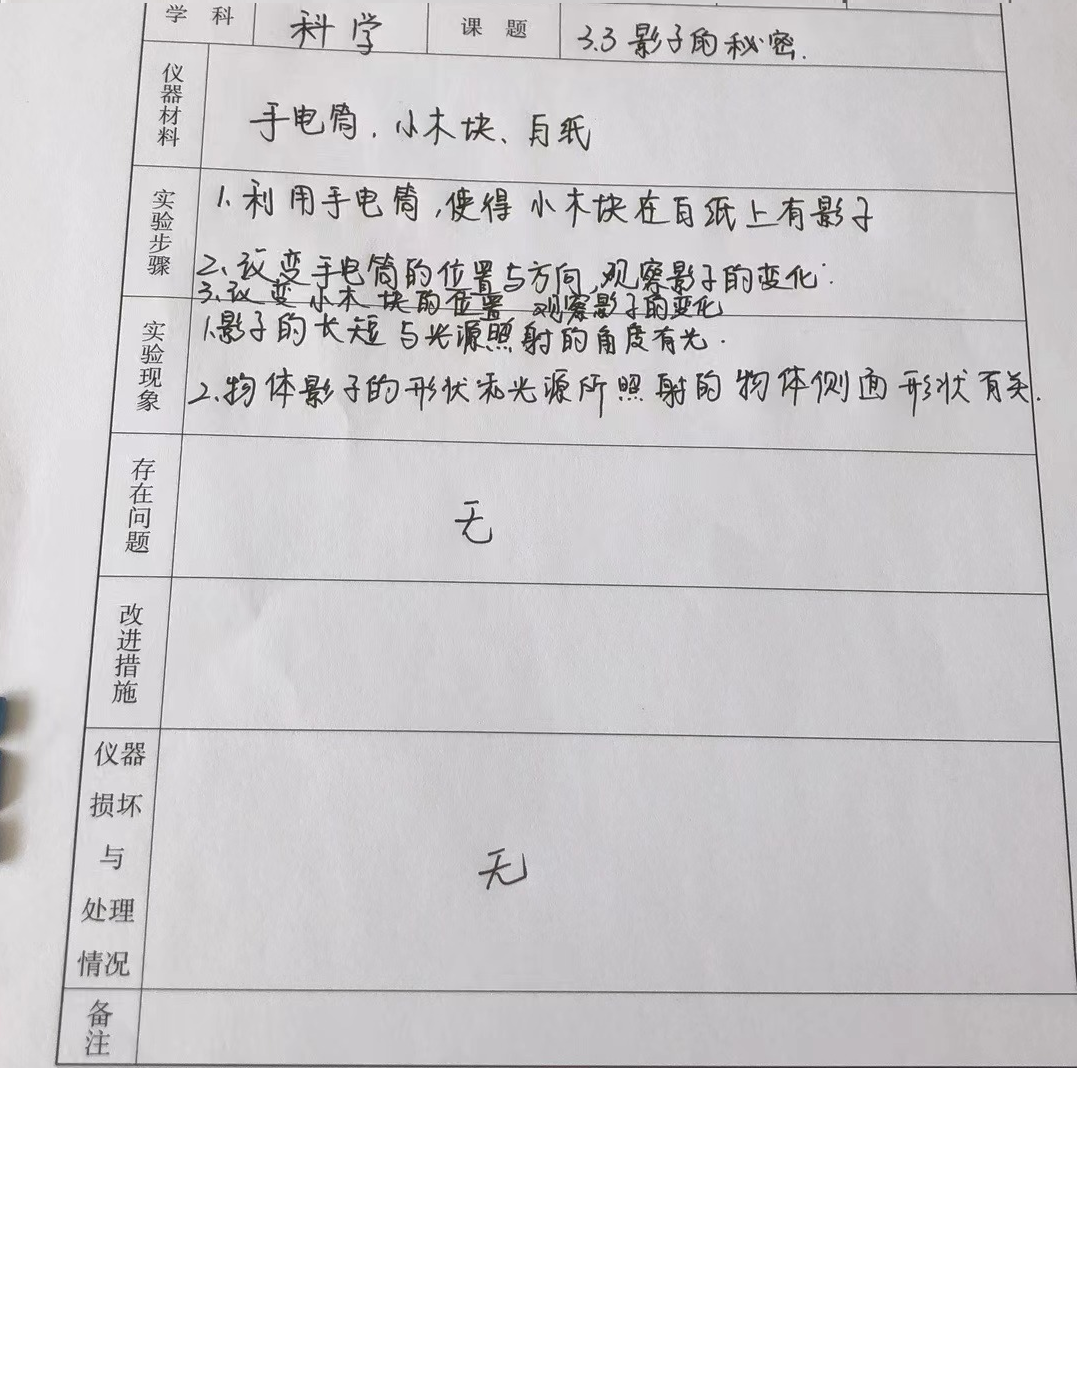 学 科 科学 课 题 3.3 影子的秘密.
仪器材料 手电筒, 小木块、白纸
实验步骤 1. 利用手电筒,使得小木块在白纸上有影子
2、改变手电筒的位置与方向,观察影子的变化.
3.改变小木块的位置 观察影子的变化
实验现象 1.影子的长短与光源照射的角度有光.
2.物体影子的形状和光源所照射的物体侧面形状有关.
存在问题 无
改进措施
仪器损坏与处理情况 无
备注